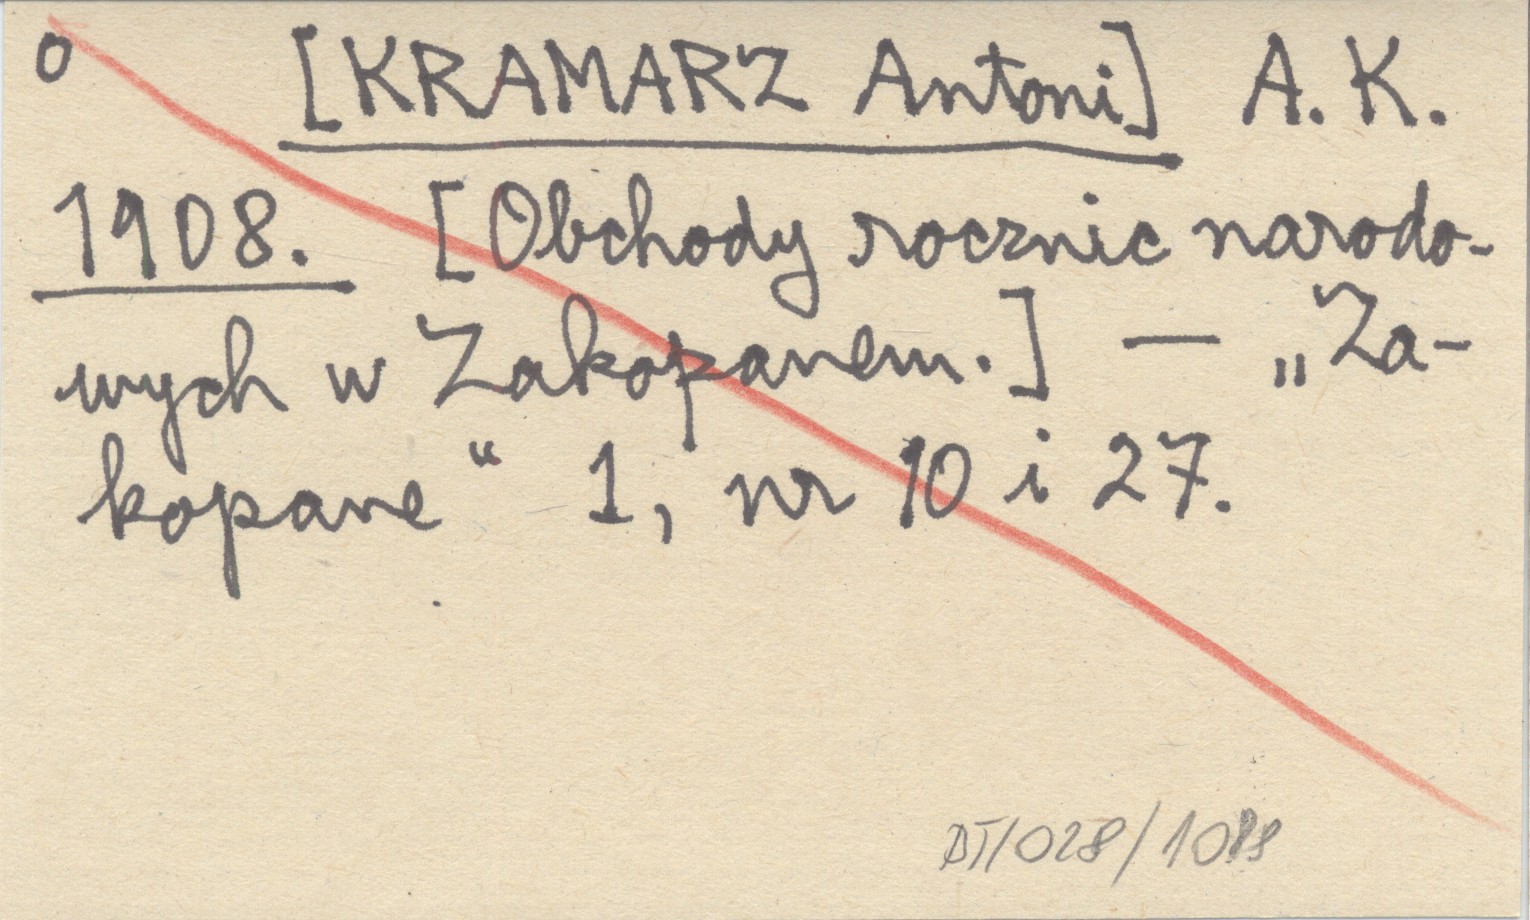 o [KRAMARZ Antoni] A. K.
1908. [Obchody rocznic narodo-
wych w Zakopanem.] — „Za-
kopane“ 1, nr 10 i 27.